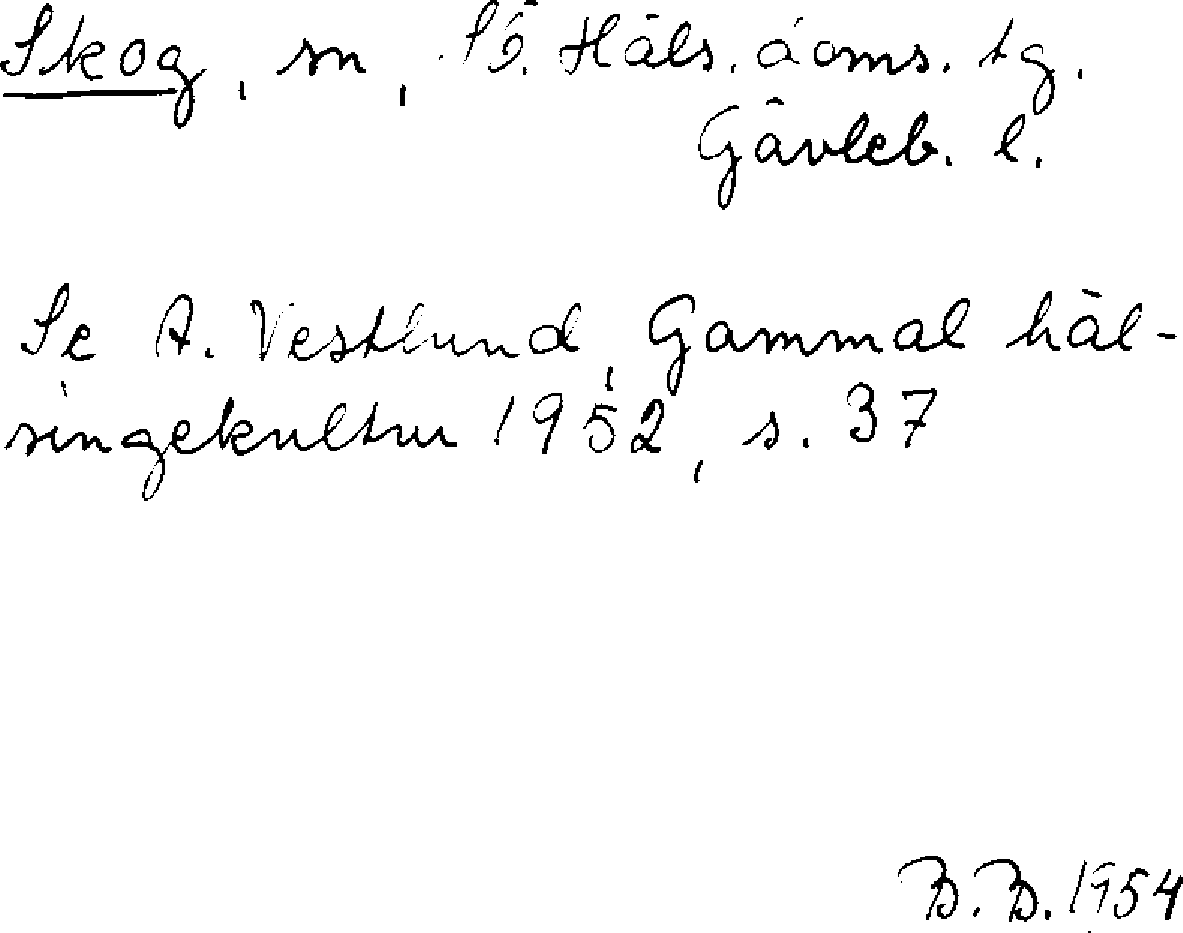 Skog, sn, Sö. Häls. doms. tg.
Gävleb. l.
Se A. Vestlund, Gammal häl-
singekultur 1952, s. 37
B.B. 1954